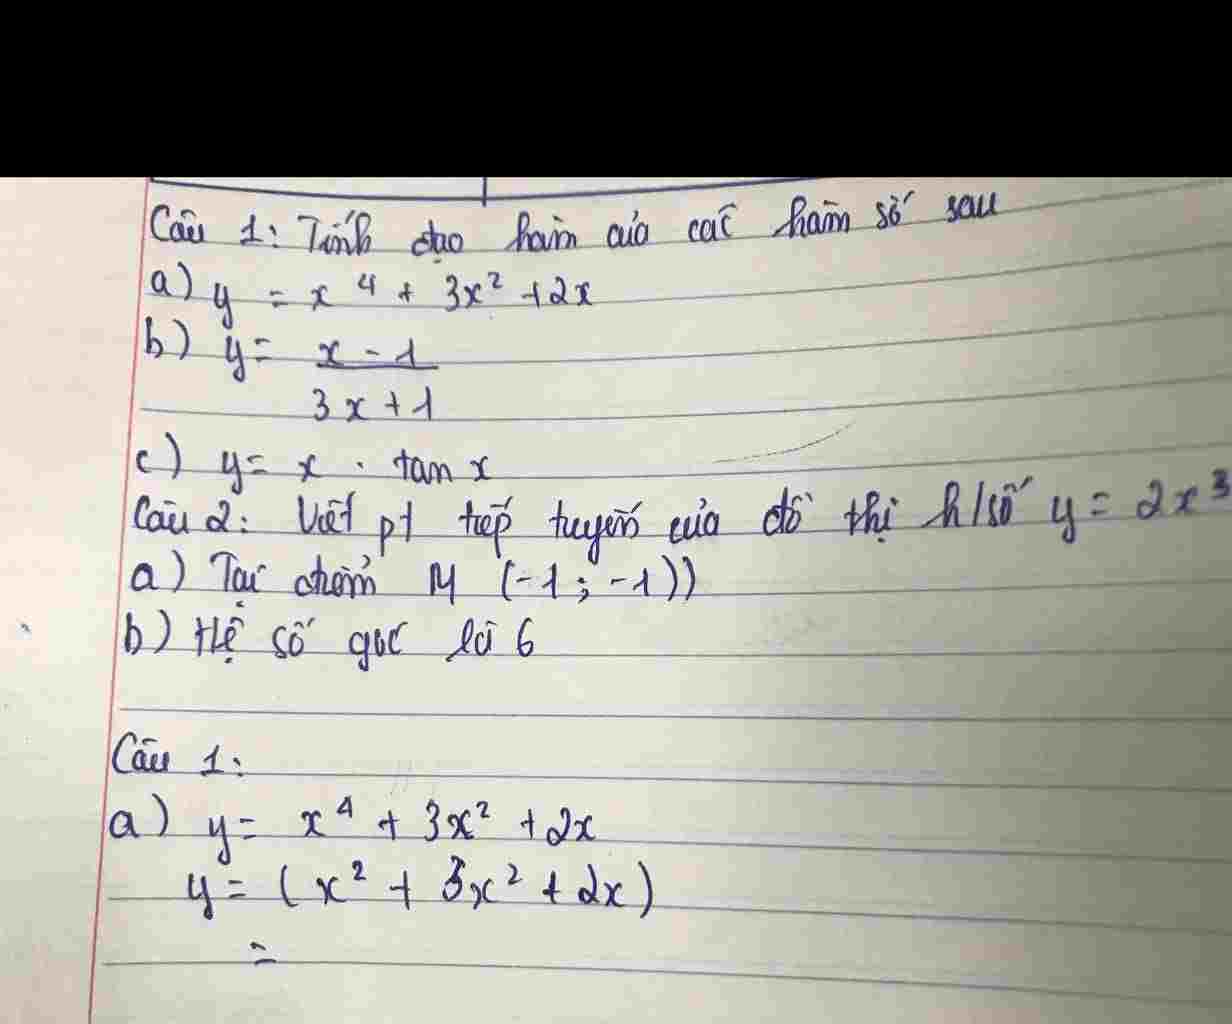 Câu 1: Tính đạo hàm của các hàm số sau
a) y = x⁴ + 3x² + 2x
b) y = \frac{x - 1}{3x + 1}
c) y = x . tan x
Câu 2: Viết pt tiếp tuyến của đồ thị h/số y = 2x³
a) Tại điểm M (-1; -1))
b) Hệ số góc là 6
Câu 1:
a) y = x⁴ + 3x² + 2x
y = (x² + 3x² + 2x)
=